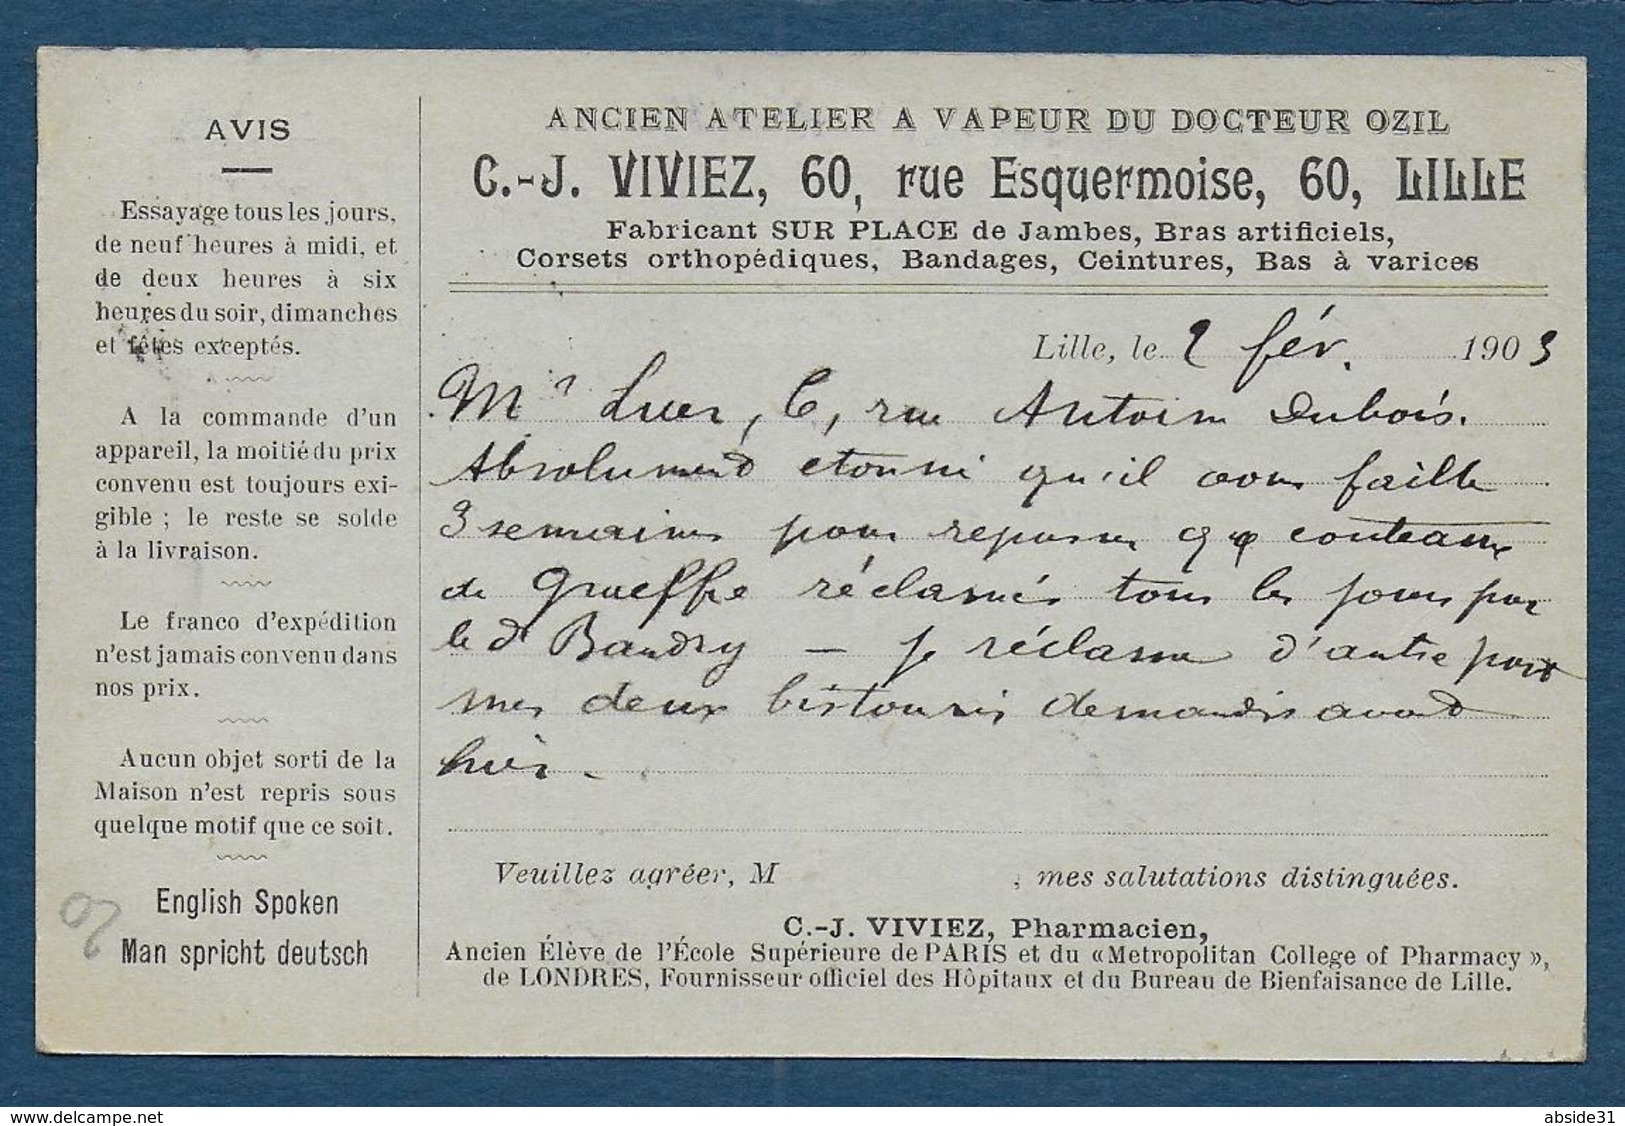 AVIS
Essayage tous les jours,
de neuf heures à midi, et
de deux heures à six
heures du soir, dimanches
et fêtes exceptés.
A la commande d'un
appareil, la moitié du prix
convenu est toujours exi-
gible ; le reste se solde
à la livraison.
Le franco d'expédition
n'est jamais convenu dans
nos prix.
Aucun objet sorti de la
Maison n'est repris sous
quelque motif que ce soit.
English Spoken
Man spricht deutsch
ANCIEN ATELIER A VAPEUR DU DOCTEUR OZIL
C.-J. VIVIEZ, 60, rue Esquermoise, 60, LILLE
Fabricant SUR PLACE de Jambes, Bras artificiels,
Corsets orthopédiques, Bandages, Ceintures, Bas à varices
Lille, le 2 fév. 1903
Mr Luer, 6, rue Antoine Dubois.
Absolument étonné qu'il vous faille
3 semaines pour repasser qq couteaux
de Graeffe réclamés tous les jours par
le dr Baudry — je réclame d'autre part
mes deux bistouris demandés avant
hier.
Veuillez agréer, M , mes salutations distinguées.
C.-J. VIVIEZ, Pharmacien,
Ancien Élève de l'École Supérieure de PARIS et du «Metropolitan College of Pharmacy »,
de LONDRES, Fournisseur officiel des Hôpitaux et du Bureau de Bienfaisance de Lille.
delcampe.net
abside31